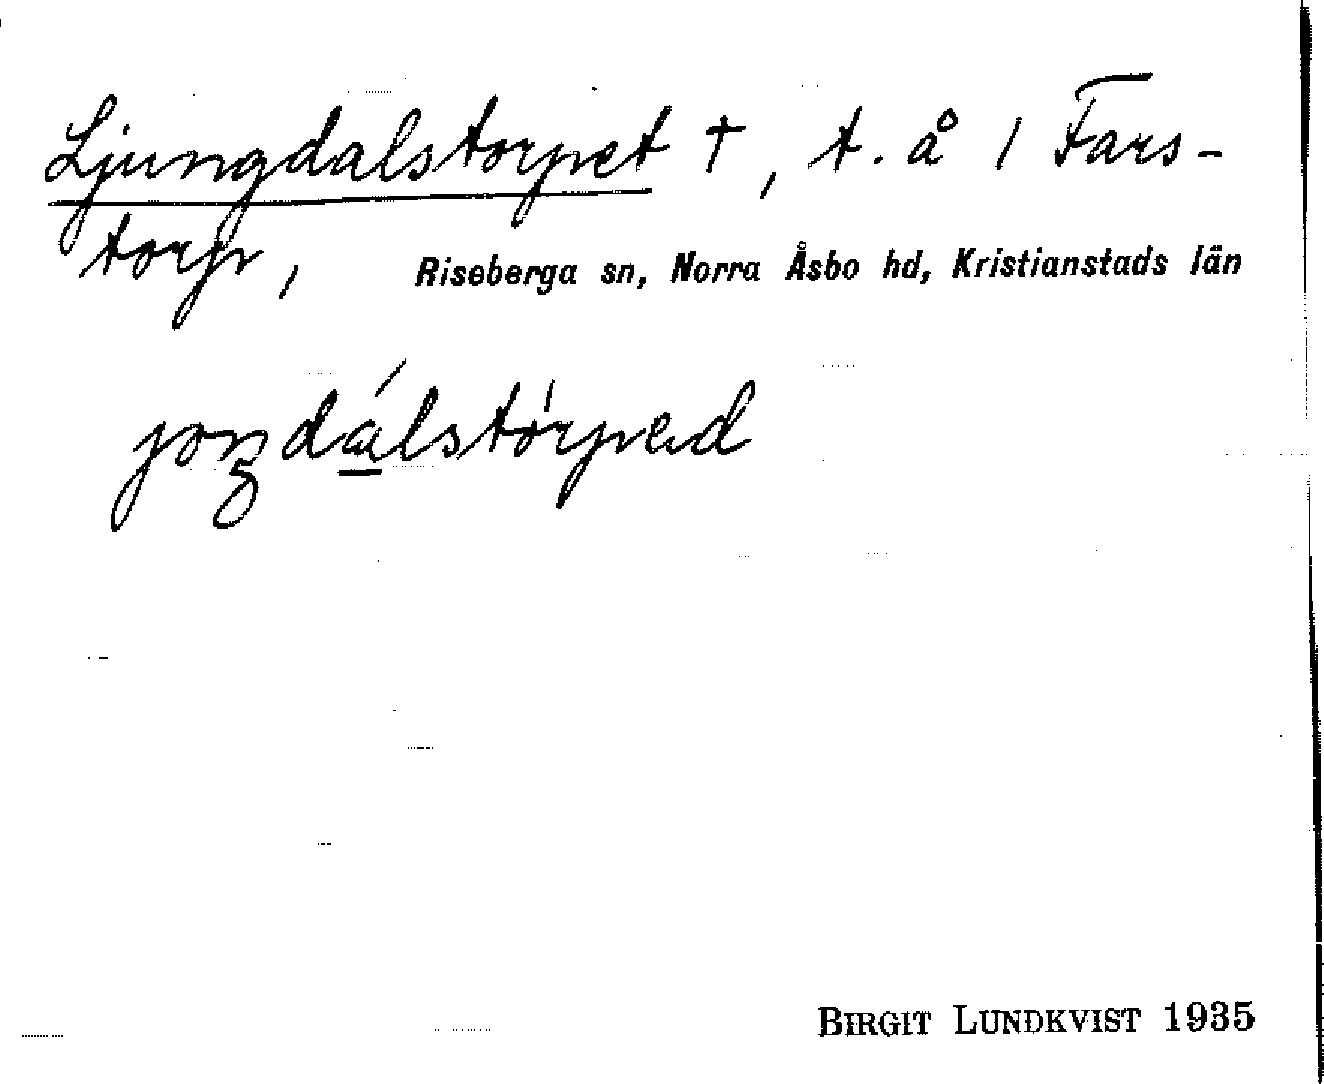 Ljungdalstorpet †, t. å 1 Fars-
torp, Riseberga sn, Norra Åsbo hd, Kristianstads län
joŋdálstórped
BIRGIT LUNDKVIST 1935